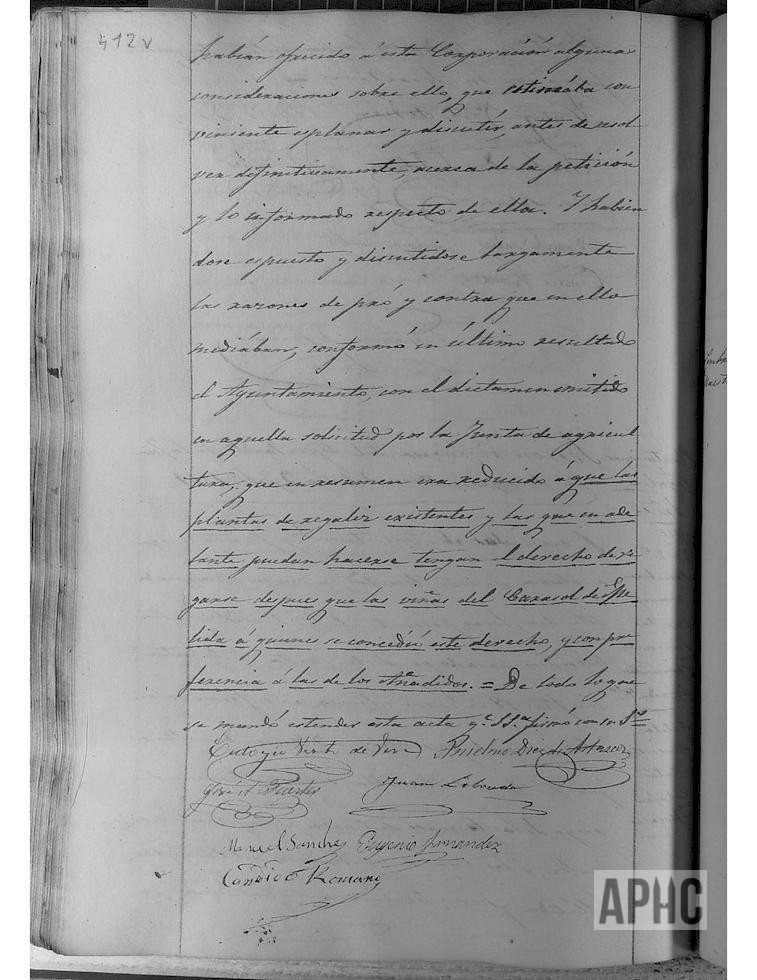 412v
habian ofrecido á esta Corporación algunas
consideraciones sobre ello, que estimába con
viniente esplanar y discutir, antes de resol
ver definitivamente, acerca de la petición
y lo informado respecto de ella. Y habien
dose espuesto y discutidose largamente
las razones de pró y contra que en ello
mediában, conformó en último resultado
el Ayuntamiento, con el dictamen emitido
en aquella solicitud por la Junta de agricul
tura, que en resumen era reducido á que las
plantas de regaliz existentes y las que en ade
lante puedan hacerse tengan el derecho de re
garse despues que las viñas del Carasol de
á quienes se concedió este derecho, y con pre
ferencia á las de los = De todo lo que
se mandó estender esta acta q.e firmó con su
Eulogio de Anselmo Diez de
José A. Fuertes Juan
Manuel Sanchez Eugenio Fernandez
Candido Romano
APHC